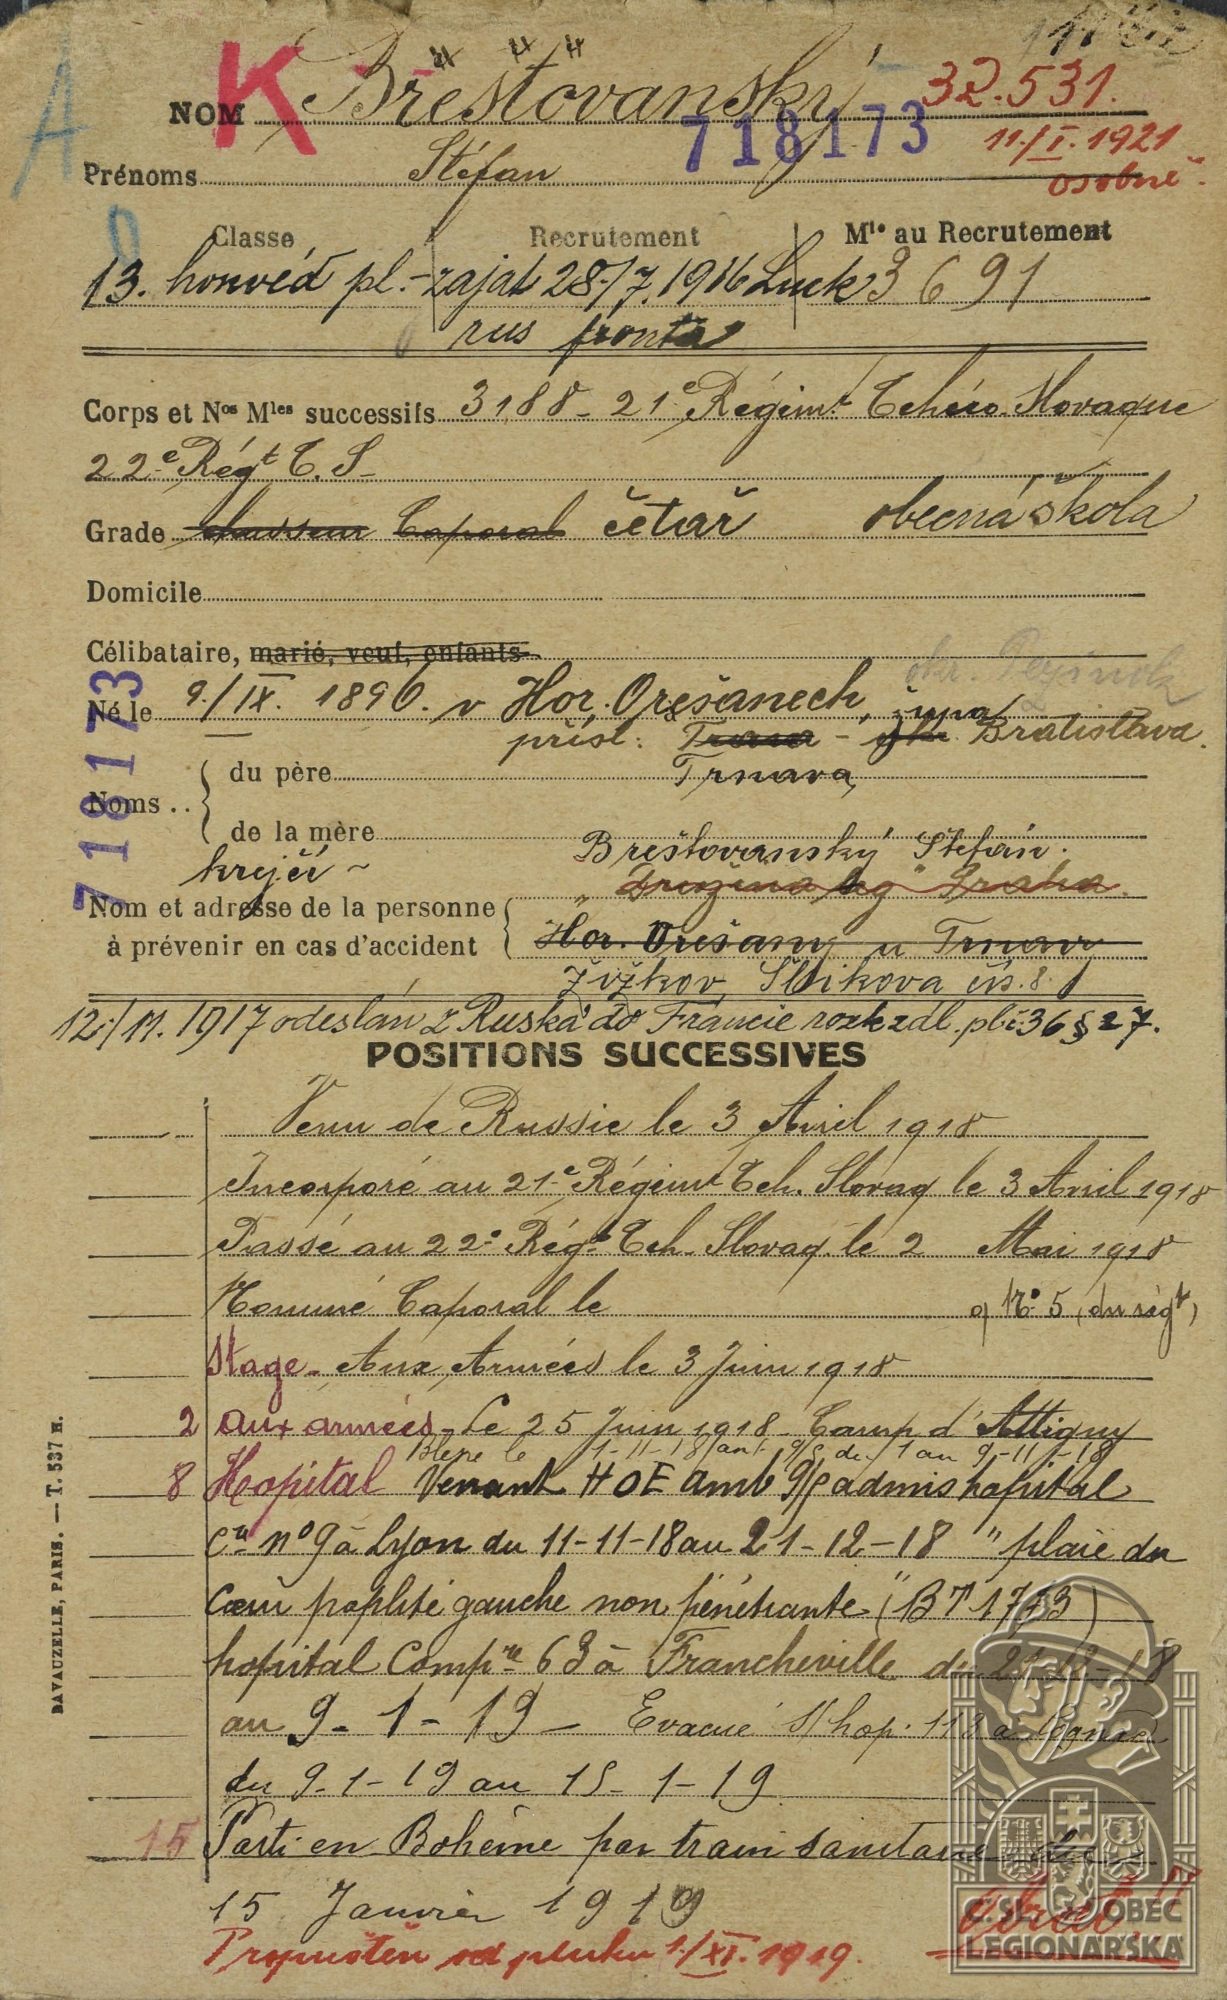 A K
NOM Břešťovanský 32.531.
718173 11./I. 1921
Prénoms Stéfan osobně.
Classe Recrutement Mle au Recrutement
13. honvéd pl. - zajat 28./7. 1916 Luck 3691
rus fronta
Corps et Nos Mles successifs 3188 - 21e Régimt Tchéco. Slovaque
22e Régt T. S.
Grade chasseur Caporal četař obecná škola
Domicile
Célibataire, marié, veuf, enfants
Né le 9./IX. 1896. v Hor. Orešanech, župa
přísl: Bratislava.
718173
Noms .. du père Trnava,
de la mère
krejčí Brešťovanský Štefán.
Nom et adresse de la personne
à prévenir en cas d'accident Hor. Orešany u Trnavy
Žižkov
12./11. 1917 odeslán z Ruska do Francie rozk zdl. pl. č 36 § 27.
POSITIONS SUCCESSIVES
Venu de Russie le 3 Avril 1918
Incorporé au 21e Régimt Tch. Slovaq le 3 Avril 1918
Passé au 22e Régt Tch. Slovaq. le 2 Mai 1918
Nommé Caporal le o No 5 (du régt)
Stage - Aux Armées le 3 Juin 1918
2 aux armées - Le 25 Juin 1918 - Camp d'Attigny
Blessé le 1-11-18 9/8 du 1 au 9-11-18
8 Hopital Venant HOE amb 9/8 admis hopital
no 9 à Lyon du 11-11-18 au 21-12-18 " plaie du
poplité gauche non pénétrante"
hopital Compre 63 à Francheville du 21-12-18
au 9-1-19 - Evacué s/hop. 113 à
du 9-1-19 au 15-1-19
15 Parti en Bohême par train sanitaire le
15 Janvier 1919
Propuštěn od pluku 1./XI. 1919.
DAVAUZELLE, PARIS. — T. 537 H.
Č. SL. OBEC
LEGIONÁŘSKÁ